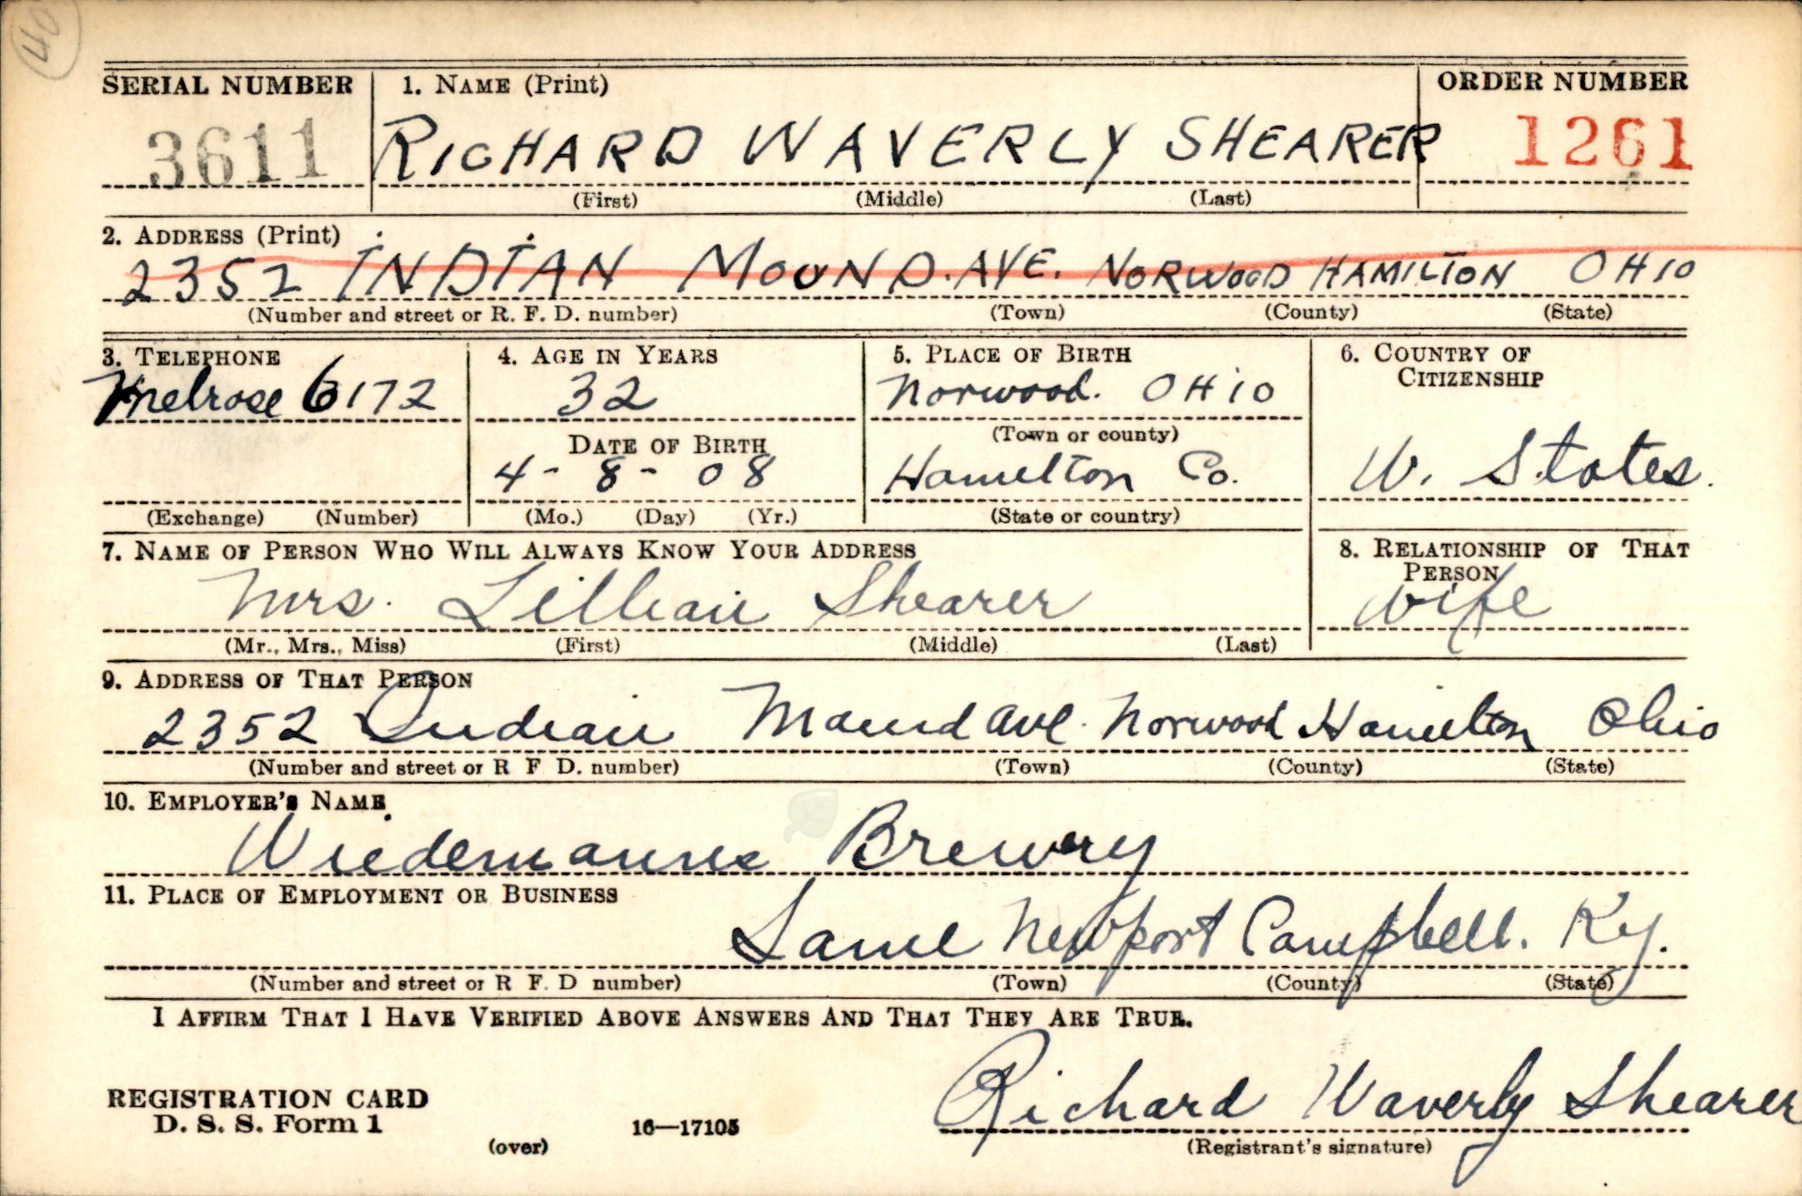 40
SERIAL NUMBER 1. NAME (Print) ORDER NUMBER
3611 RICHARD WAVERLY SHEARER 1261
(First) (Middle) (Last)
2. ADDRESS (Print)
2352 INDIAN MOUND. AVE. NORWOOD HAMILTON OHIO
(Number and street or R. F. D. number) (Town) (County) (State)
3. TELEPHONE 4. AGE IN YEARS 5. PLACE OF BIRTH 6. COUNTRY OF
CITIZENSHIP
Melrose 6172 32 Norwood. OHiO
(Town or county)
DATE OF BIRTH
4 - 8 - 08 Hamilton Co. U. States.
(Exchange) (Number) (Mo.) (Day) (Yr.) (State or country)
7. NAME OF PERSON WHO WILL ALWAYS KNOW YOUR ADDRESS 8. RELATIONSHIP OF THAT
PERSON
Mrs. Lillian Shearer wife
(Mr., Mrs., Miss) (First) (Middle) (Last)
9. ADDRESS OF THAT PERSON
2352 Indian Mound ave. Norwood Hamilton Ohio
(Number and street or R F D. number) (Town) (County) (State)
10. EMPLOYER'S NAME
Wiedemanns Brewery
11. PLACE OF EMPLOYMENT OR BUSINESS
Same Newport Campbell. Ky.
(Number and street or R F. D number) (Town) (County) (State)
I AFFIRM THAT I HAVE VERIFIED ABOVE ANSWERS AND THAT THEY ARE TRUE.
Richard Waverly Shearer
REGISTRATION CARD
D. S. S. Form 1
(over) 16—17105 (Registrant's signature)